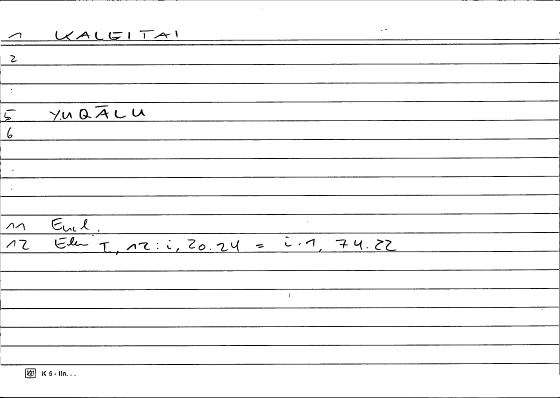 1 KALEITAI
2
5 YUQĀLU
6
11 Eucl.
12 Elem I, 12 : i, 20.24 = i.1, 74.22
K 5 - lin...